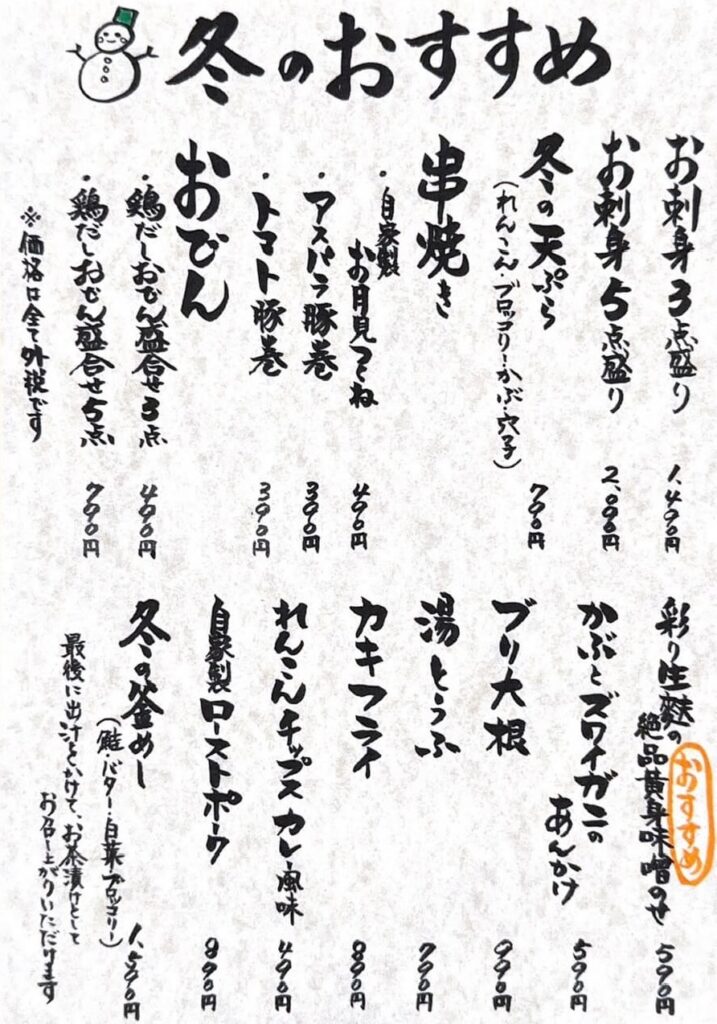 冬のおすすめ
お刺身3点盛り 1,490円
お刺身5点盛り 2,090円
冬の天ぷら 790円
(れんこん・ブロッコリー・かぶ・穴子)
串焼き
・自家製お月見つくね 490円
・アスパラ豚巻 390円
・トマト豚巻 390円
おでん
・鶏だしおでん盛合せ3点 490円
・鶏だしおでん盛合せ5点 790円
※価格は全て外税です
彩り生麩の
絶品黄身味噌のせ 590円
おすすめ
かぶとズワイガニの
あんかけ 590円
ブリ大根 990円
湯とうふ 790円
カキフライ 890円
れんこんチップスカレー風味 490円
自家製ローストポーク 890円
冬の釜めし
(鮭・バター・白菜・ブロッコリー) 1,590円
最後に出汁をかけて、お茶漬けとして
お召し上がりいただけます